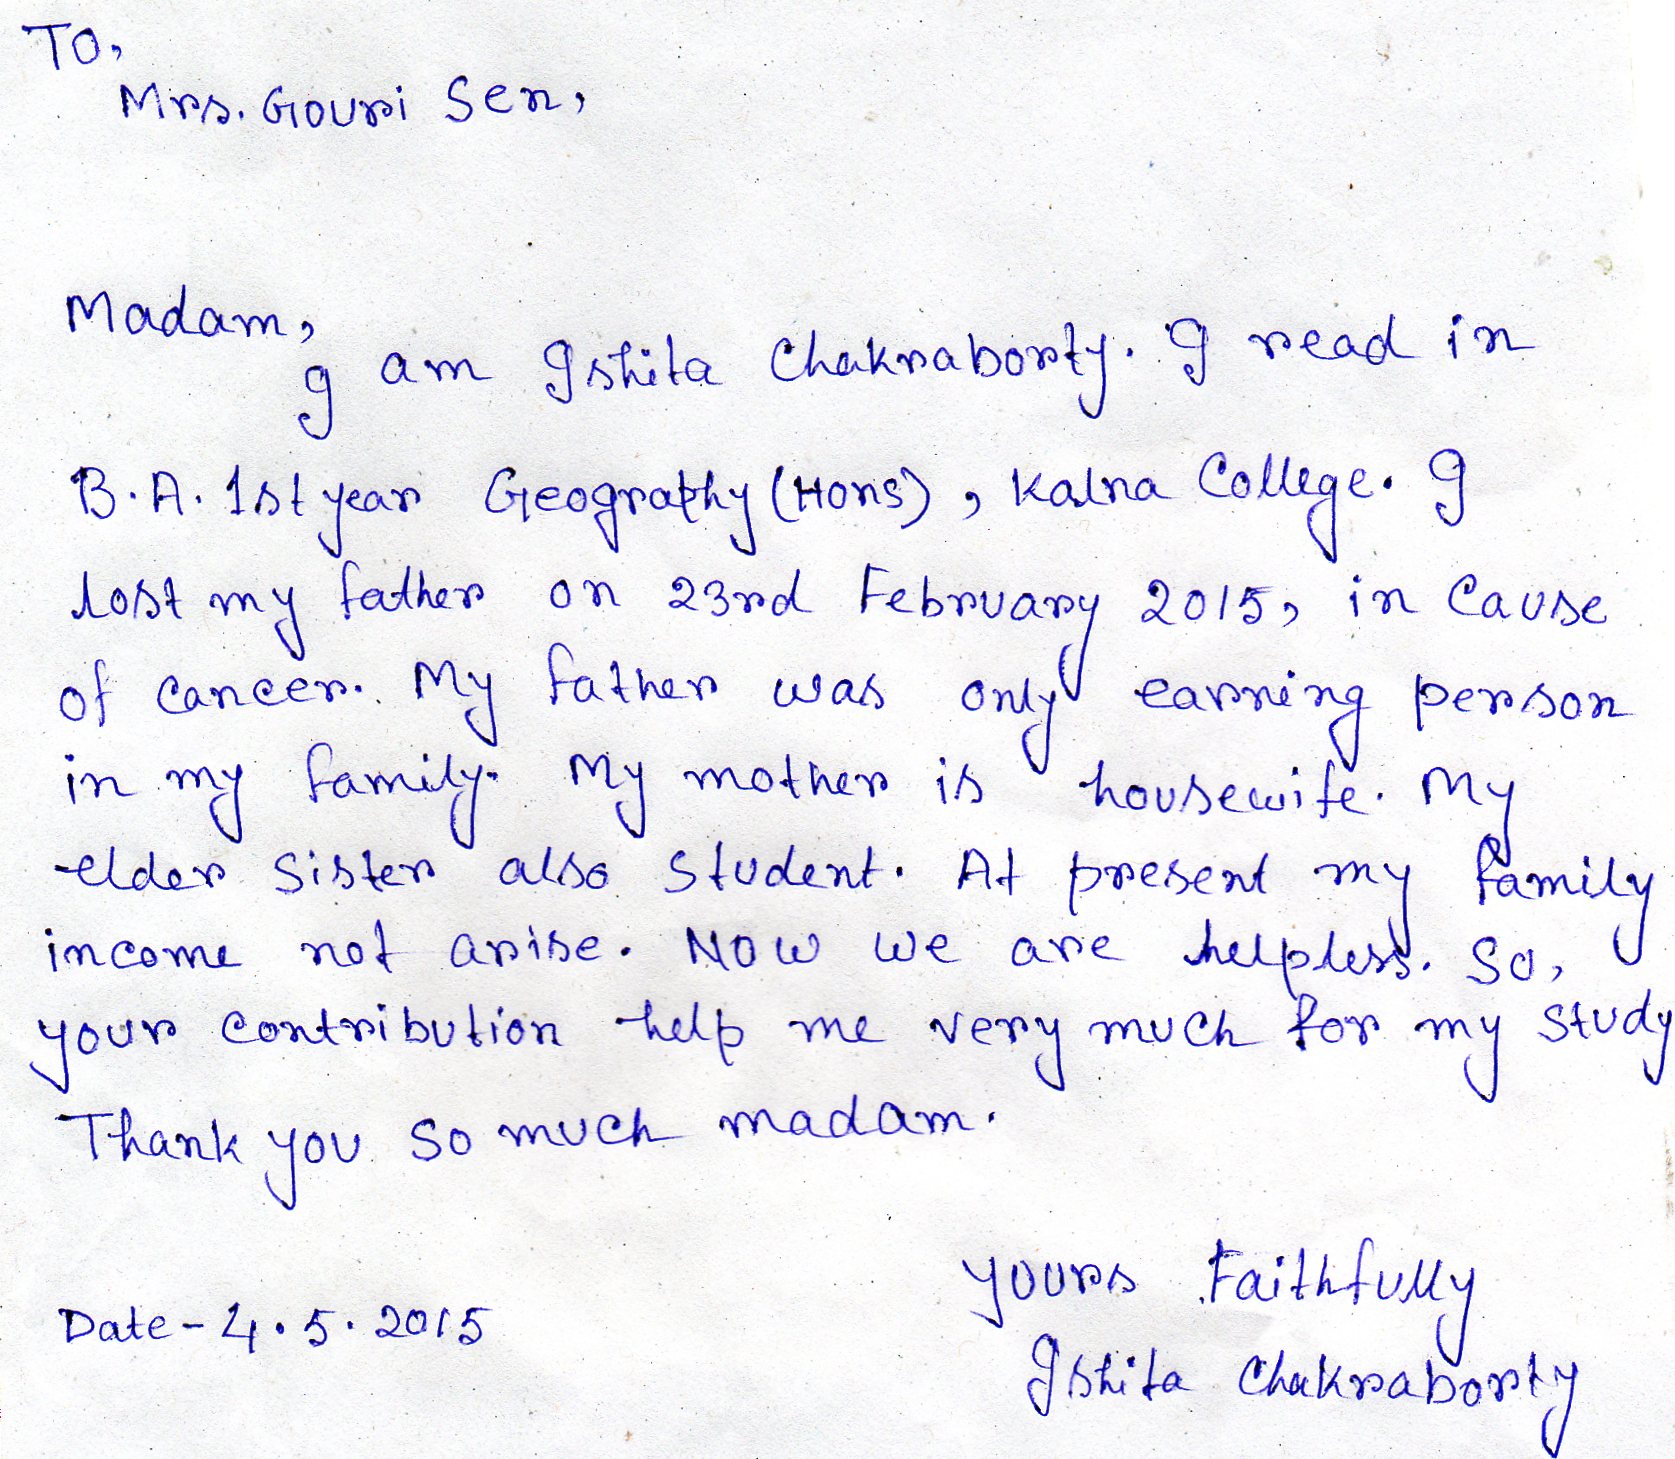 To,
Mrs. Gouri Sen,
Madam,
I am Ishita Chakraborty. I read in
B.A. 1st year Geography (Hons), Kalna College. I
lost my father on 23rd February 2015, in cause
of cancer. My father was only earning person
in my family. My mother is housewife. My
elder sister also student. At present my family
income not arise. Now we are helpless. So,
your contribution help me very much for my study
Thank you so much madam.
Yours Faithfully
Date - 4.5.2015
Ishita Chakraborty